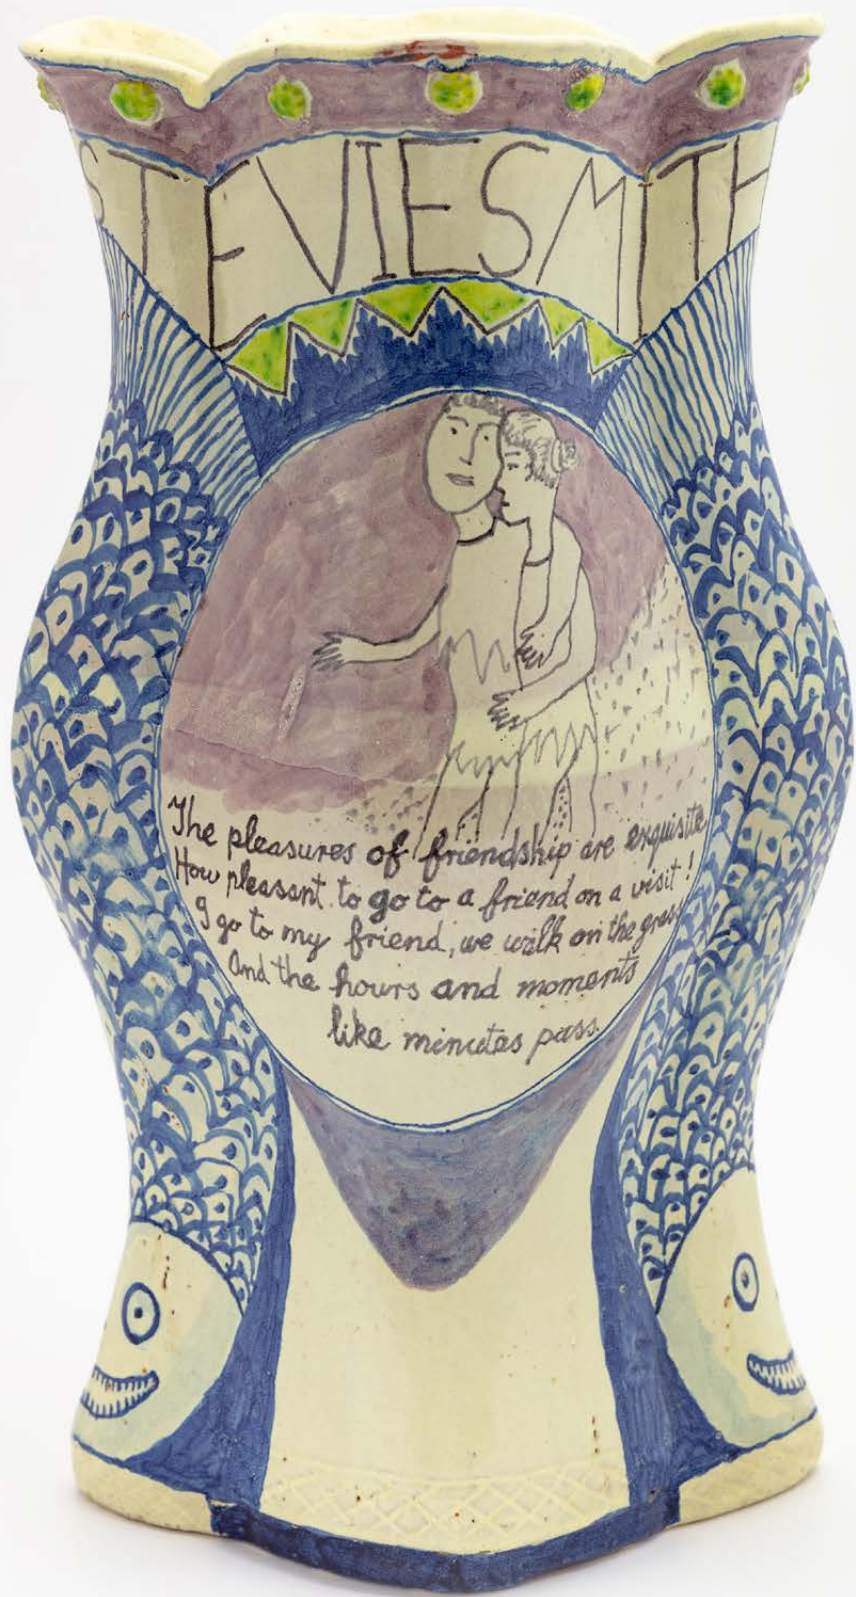 STEVIE SMITH
The pleasures of friendship are exquisite
How pleasant to go to a friend on a visit!
I go to my friend, we walk on the grass
And the hours and moments
like minutes pass.